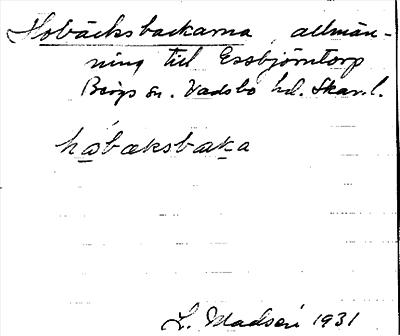 Hobäcksbackarna, allmän-
ning till Essbjörntorp
Bergs sn. Vadsbo hd. Skar.l.
håbæksbaka
L. Madsén 1931